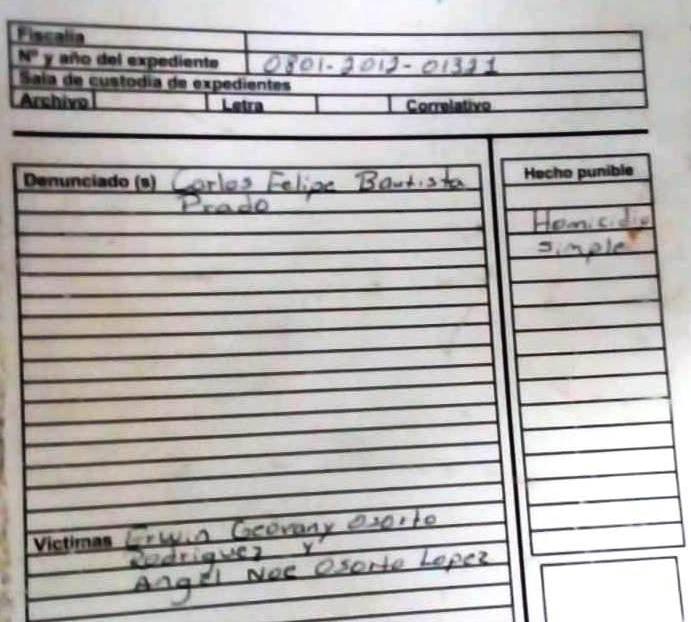 Fiscalía
Nº y año del expediente 0801-2012-01321
Sala de custodia de expedientes
Archivo Letra Correlativo
Denunciado (s) Carlos Felipe Bautista
Prado
Hecho punible
Homicidio
simple
Victimas Erwin Geovany Osorto
Rodriguez y
Angel Noe Osorto Lopez